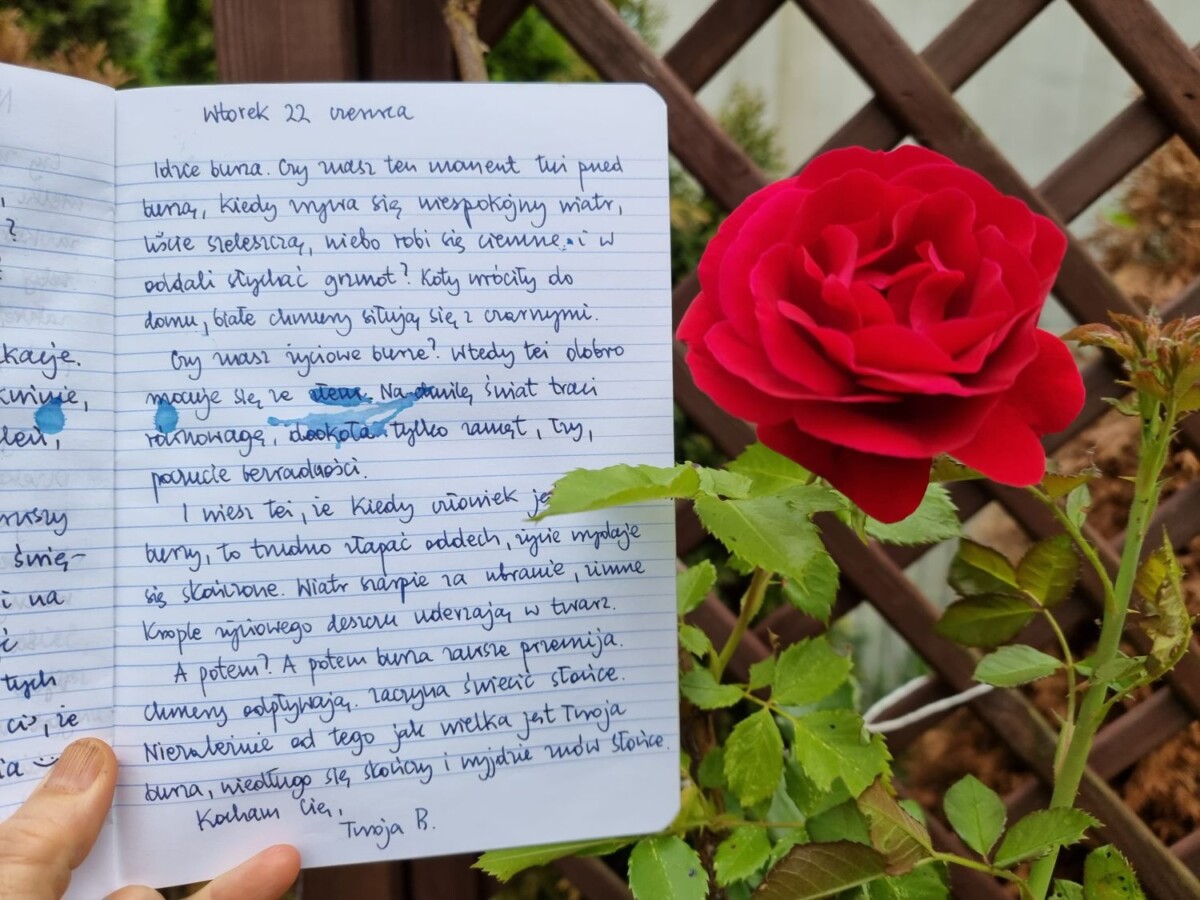 ?
kacje.
leń,
ruszy
świę-
i na
ć
tych
ci, że
Wtorek 22 czerwca
Idzie burza. Czy znasz ten moment tuż przed
burzą, kiedy zrywa się niespokojny wiatr,
liście szeleszczą, niebo robi się ciemne i w
oddali słychać grzmot? Koty wróciły do
domu, białe chmury siłują się z czarnymi.
Czy znasz życiowe burze? Wtedy też dobro
mocuje się ze złem. Na chwilę świat traci
równowagę, dookoła tylko zamęt, łzy,
poczucie bezradności.
I wiesz też, że kiedy człowiek
burzy, to trudno złapać oddech, życie wydaje
się skończone. Wiatr szarpie za ubranie, zimne
krople życiowego deszczu uderzają w twarz.
A potem? A potem burza zawsze przemija.
Chmury odpływają, zaczyna świecić słońce.
Niezależnie od tego jak wielka jest Twoja
burza, niedługo się skończy i wyjdzie znów słońce.
Kocham Cię,
Twoja B.